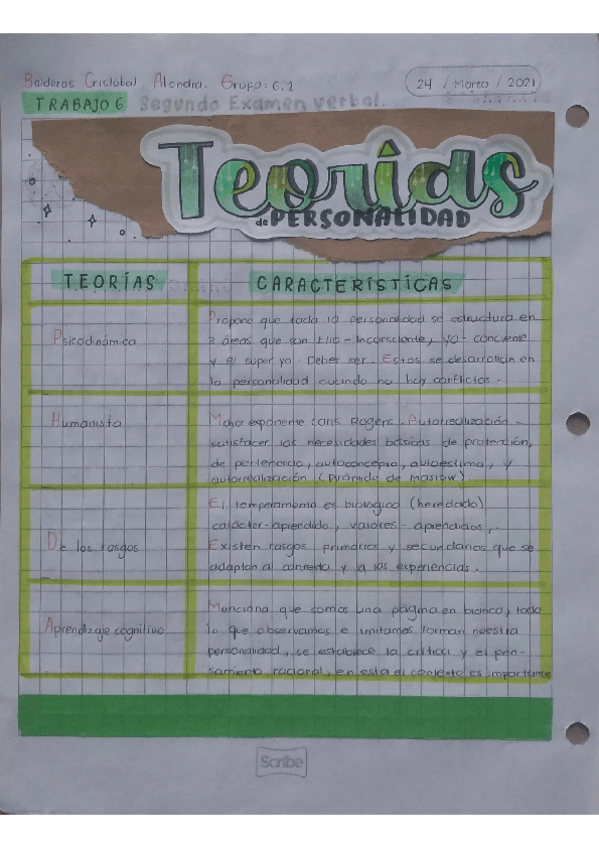 Balderas Cristóbal Alondra. Grupo: 6.2
24 / Marzo / 2021
TRABAJO 6 Segundo Examen verbal.
Teorías
de PERSONALIDAD
TEORÍAS
CARACTERÍSTICAS
Psicodinámica
Propone que toda la personalidad se estructura en
3 áreas que son Ello - Inconsciente, yo - conciente
y el super yo - Deber ser. Estos se desarrollan en
la personalidad cuando no hay conflictos.
Humanista
Mayor exponente Carls Rogers. Autorrealización -
satisfacer las necesidades básicas de protección,
de pertenencia, autoconcepto, autoestima, y
autorrealización (Pirámide de Maslow).
De los rasgos
El temperamento es biológico (heredado)
carácter - aprendido, valores - aprendidos,.
Existen rasgos primarios y secundarios que se
adaptan al contexto y a las experiencias.
Aprendizaje cognitivo
Menciona que somos una página en blanco, todo
lo que observamos e imitamos forman nuestra
personalidad, se establece la crítica y el pen-
samiento racional, en esta el contexto es importante
Scribe